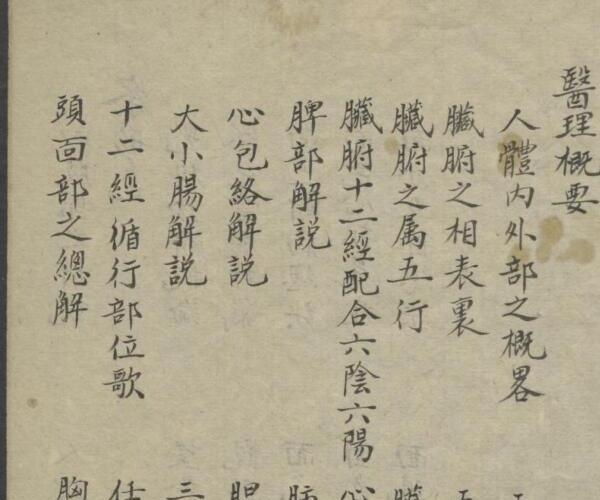 醫理概要
人體內外部之概畧
臟腑之相表裏
臟腑之属五行
臟腑十二經配合六陰六陽
脾部解説
心包絡解説
大小腸解説
十二經循行部位歌
頭面部之總解